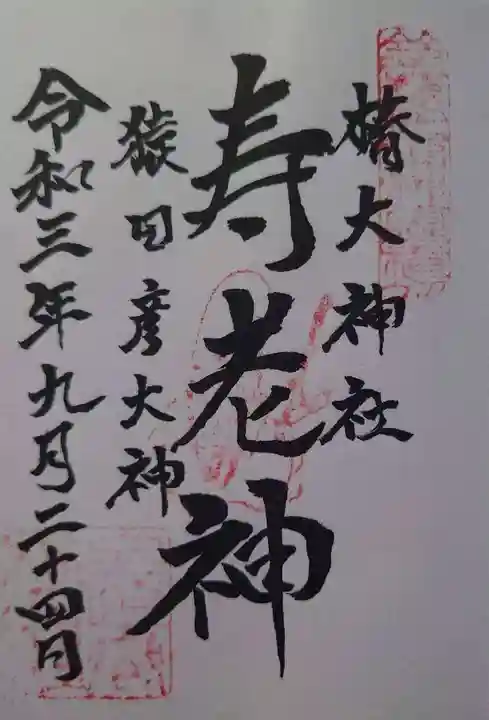 椿大神社
寿老神
猿田彦大神
令和三年九月二十四日